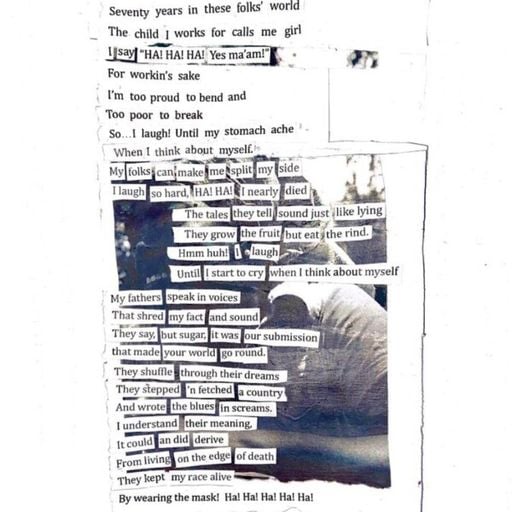 Seventy years in these folks' world
The child I works for calls me girl
I say "HA! HA! HA! Yes ma'am!"
For workin's sake
I'm too proud to bend and
Too poor to break
So...I laugh! Until my stomach ache
When I think about myself.
My folks can make me split my side
I laugh so hard, HA! HA! I nearly died
The tales they tell sound just like lying
They grow the fruit but eat the rind.
Hmm huh! I laugh
Until I start to cry when I think about myself
My fathers speak in voices
That shred my fact and sound
They say, but sugar, it was our submission
that made your world go round.
They shuffle through their dreams
They stepped 'n fetched a country
And wrote the blues in screams.
I understand their meaning,
It could an did derive
From living on the edge of death
They kept my race alive
By wearing the mask! Ha! Ha! Ha! Ha! Ha!